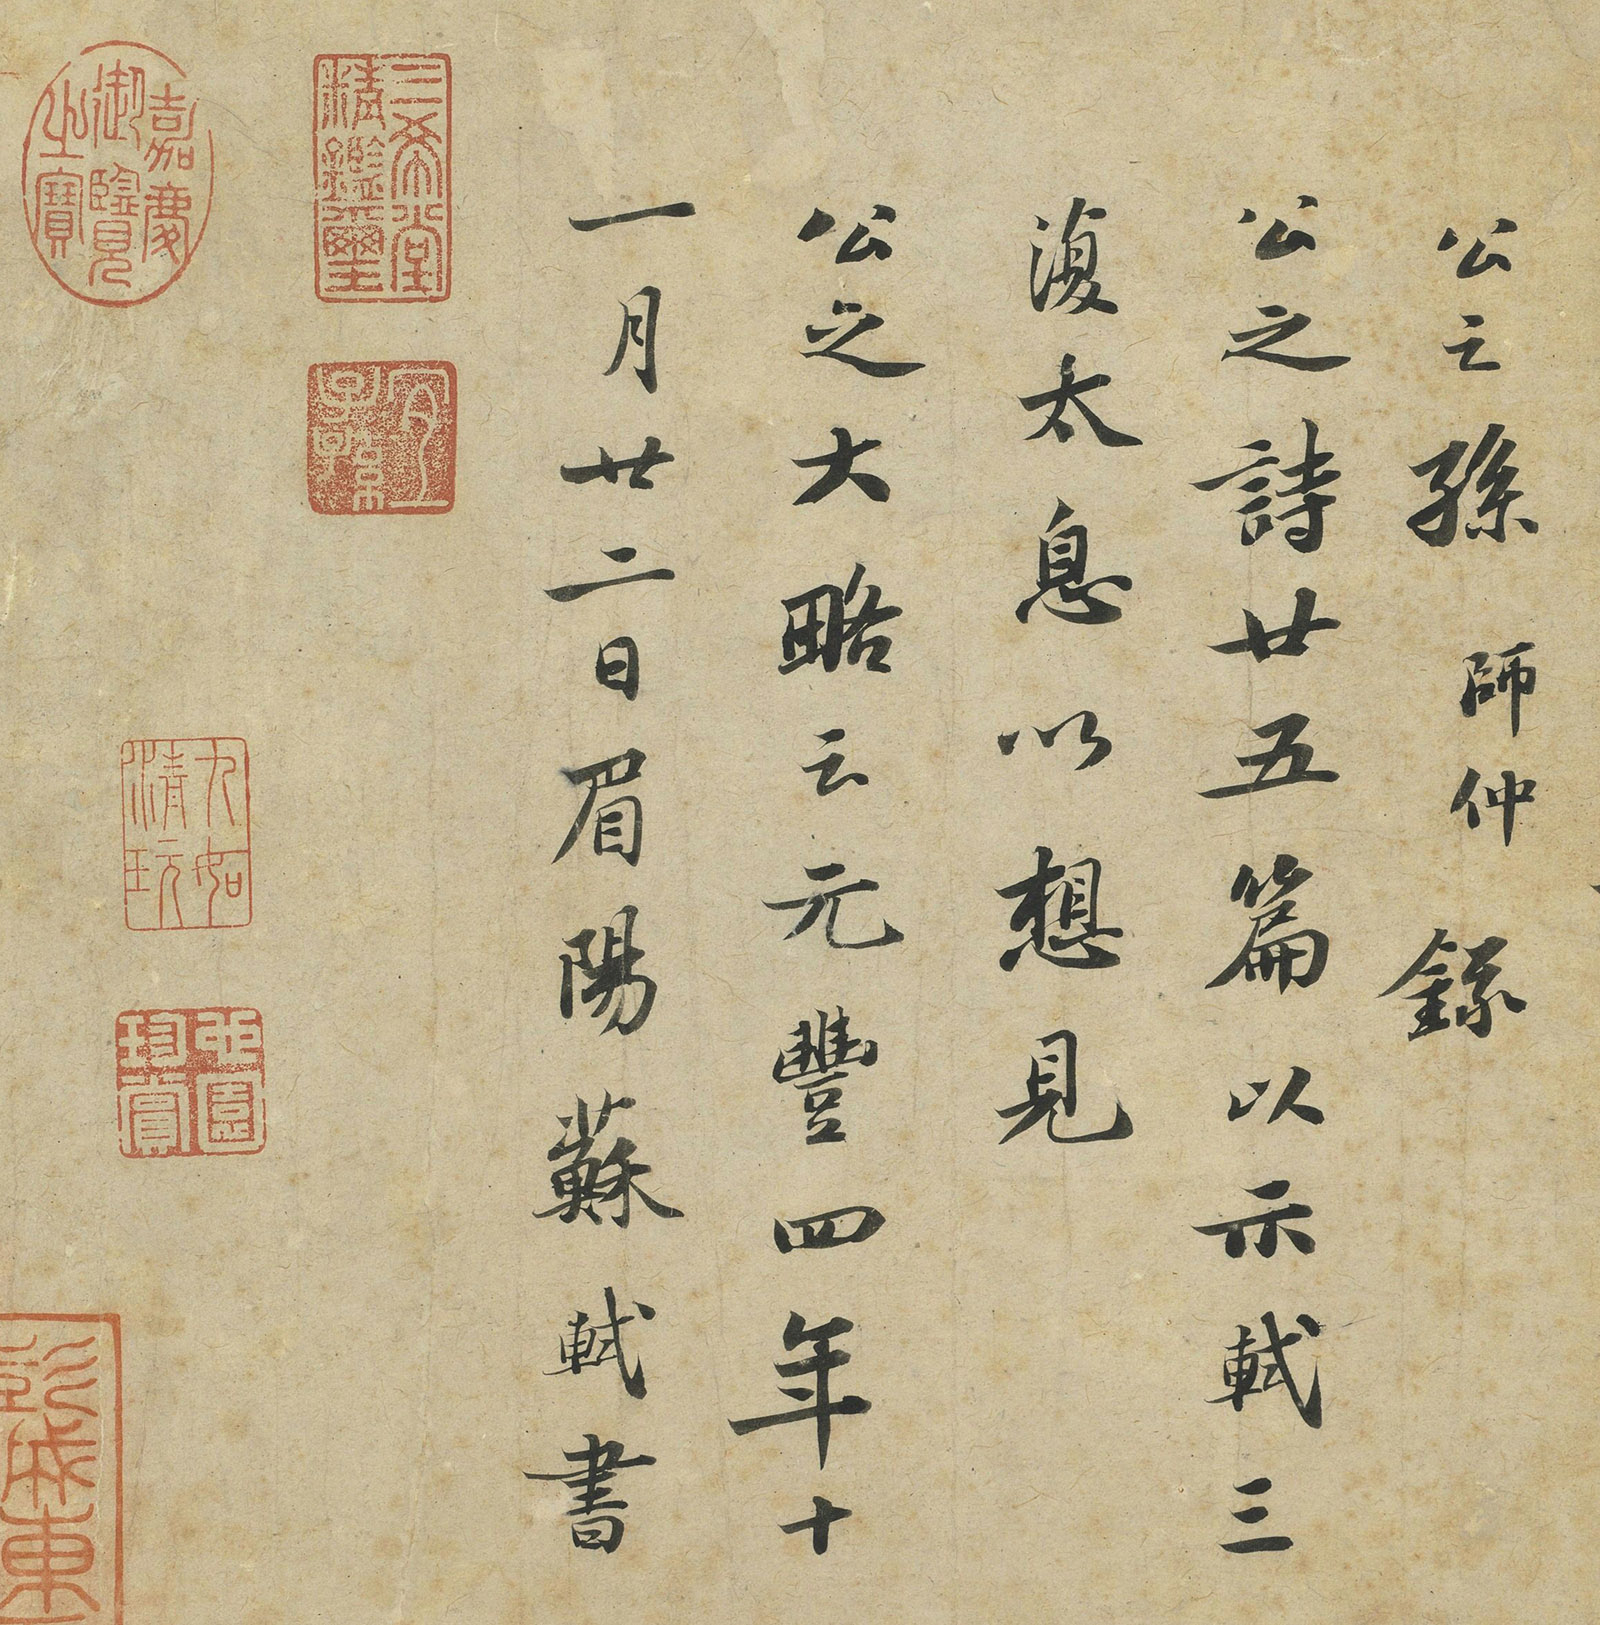 公之孫師仲錄
公之詩廿五篇以示軾三
復太息以想見
公之大略云元豐四年十
一月廿二日眉陽蘇軾書
三希堂
精鑑璽
宜子孫
嘉慶
御覽
之寶
九如
清玩
西園
珍賞